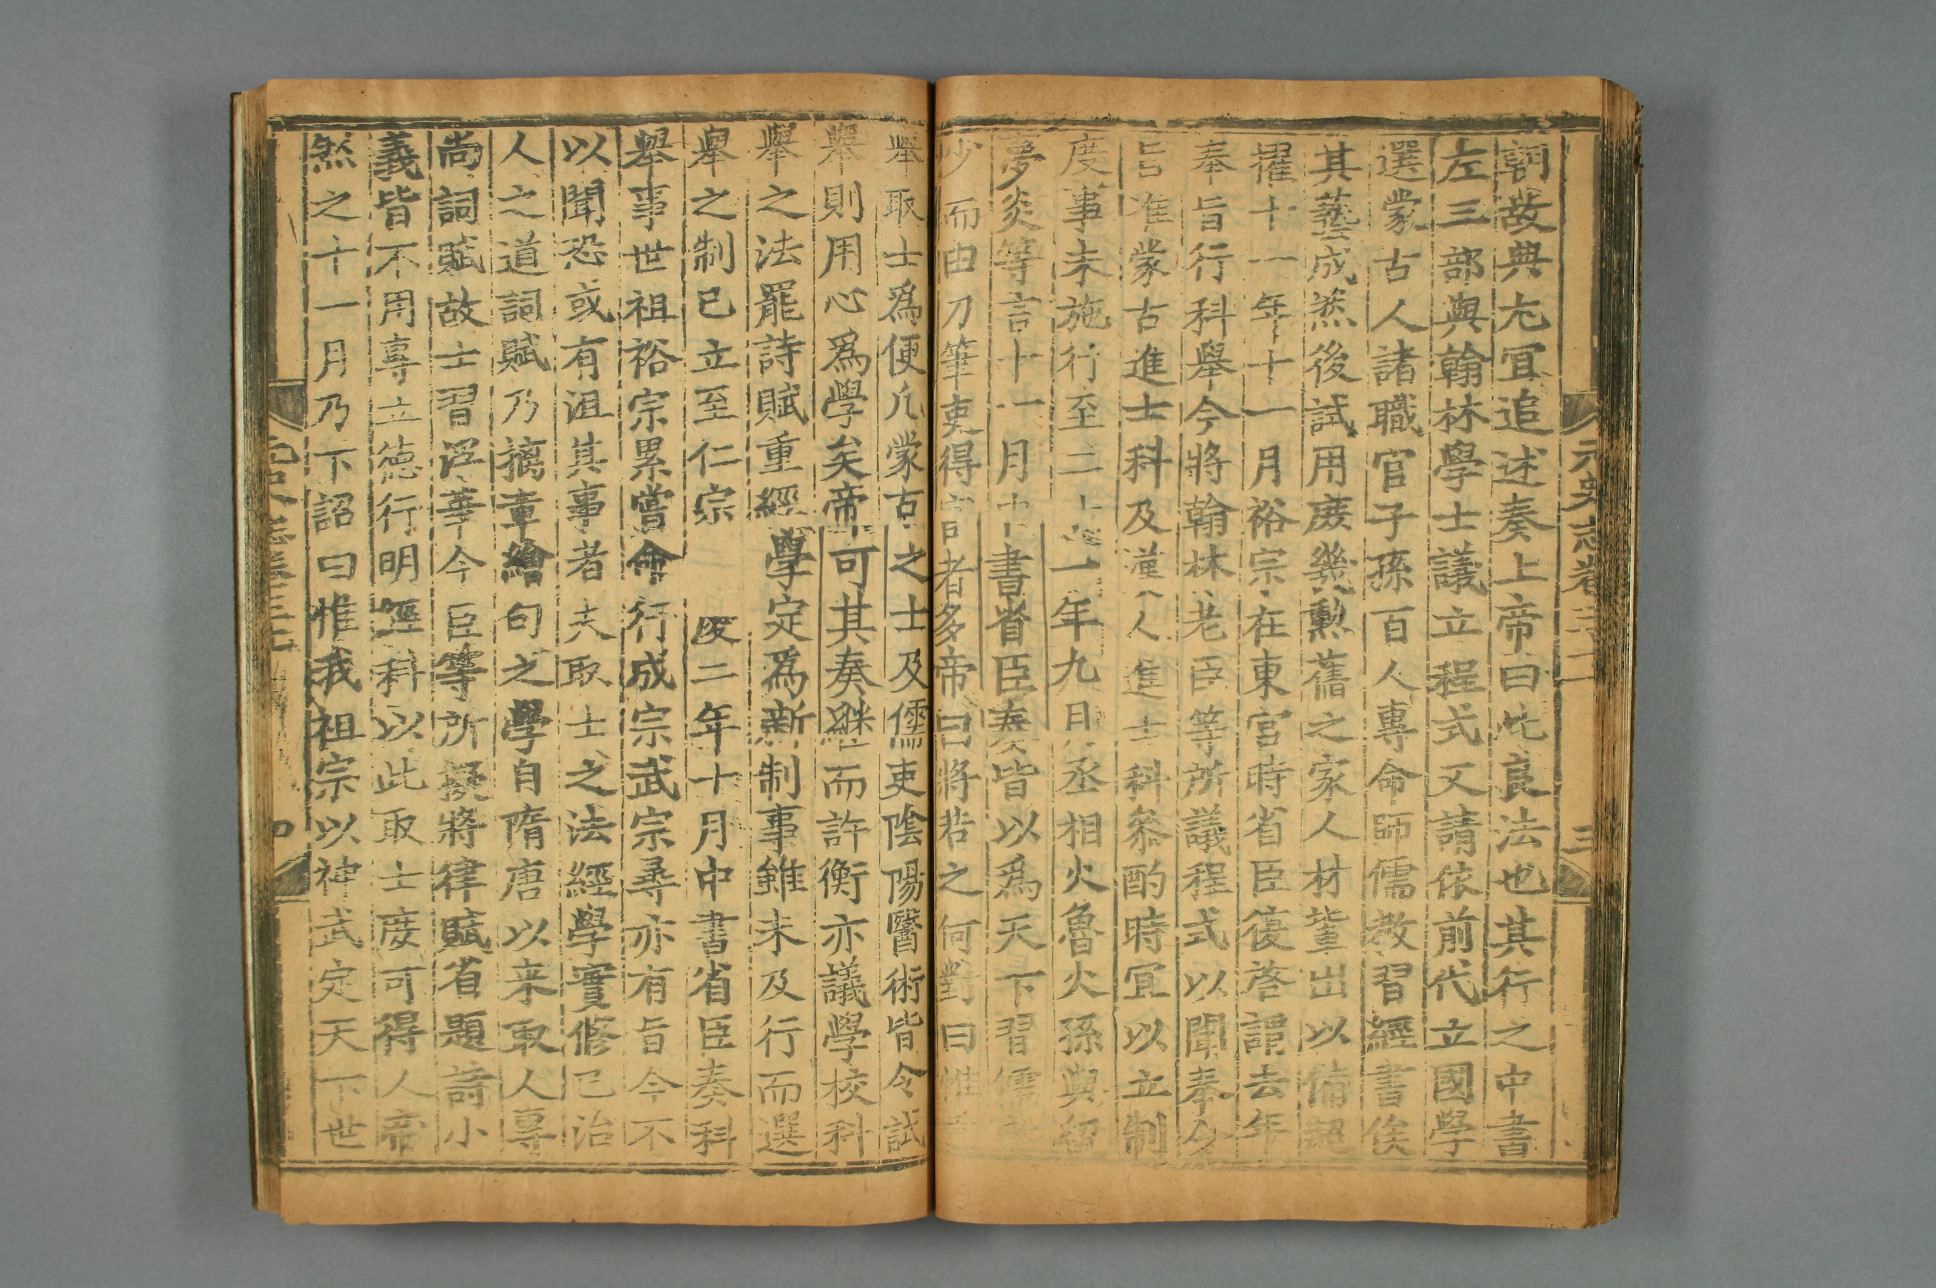 朝故典尤宜追述奏上帝曰此良法也其行之中書
左三部與翰林學士議立程式又請依前代立國學
選蒙古人諸職官子孫百人專命師儒教習經書俟
其藝成然後試用庶幾勲舊之家人材輩出以備超
擢十一年十一月裕宗在東宮時省臣復啓謂去年
奉旨行科舉今將翰林老臣等所議程式以聞奉令
旨准蒙古進士科及漢人進士科叅酌時宜以立制
度事未施行至二十一年九月丞相火魯火孫與留
夢炎等言十一月中書省臣奏皆以爲天下習儒者
少而由刀筆吏得官者多帝曰將若之何對曰惟貢
舉取士爲便凡蒙古之士及儒吏隂陽醫術皆令試
舉則用心爲學矣帝可其奏継而許衡亦議學校科
舉之法罷詩賦重經學定爲新制事雖未及行而選
舉之制已立至仁宗 慶二年十月中書省臣奏科
舉事世祖裕宗累嘗命行成宗武宗尋亦有旨今不
以聞恐或有沮其事者夫取士之法經學實修己治
人之道詞賦乃摛章繪句之學自隋唐以来取人專
尚詞賦故士習浮華今臣等所擬將律賦省題詩小
義皆不用專立德行明經科以此取士庶可得人帝
然之十一月乃下詔曰惟我祖宗以神武定天下世
元史志卷三十一
三
四